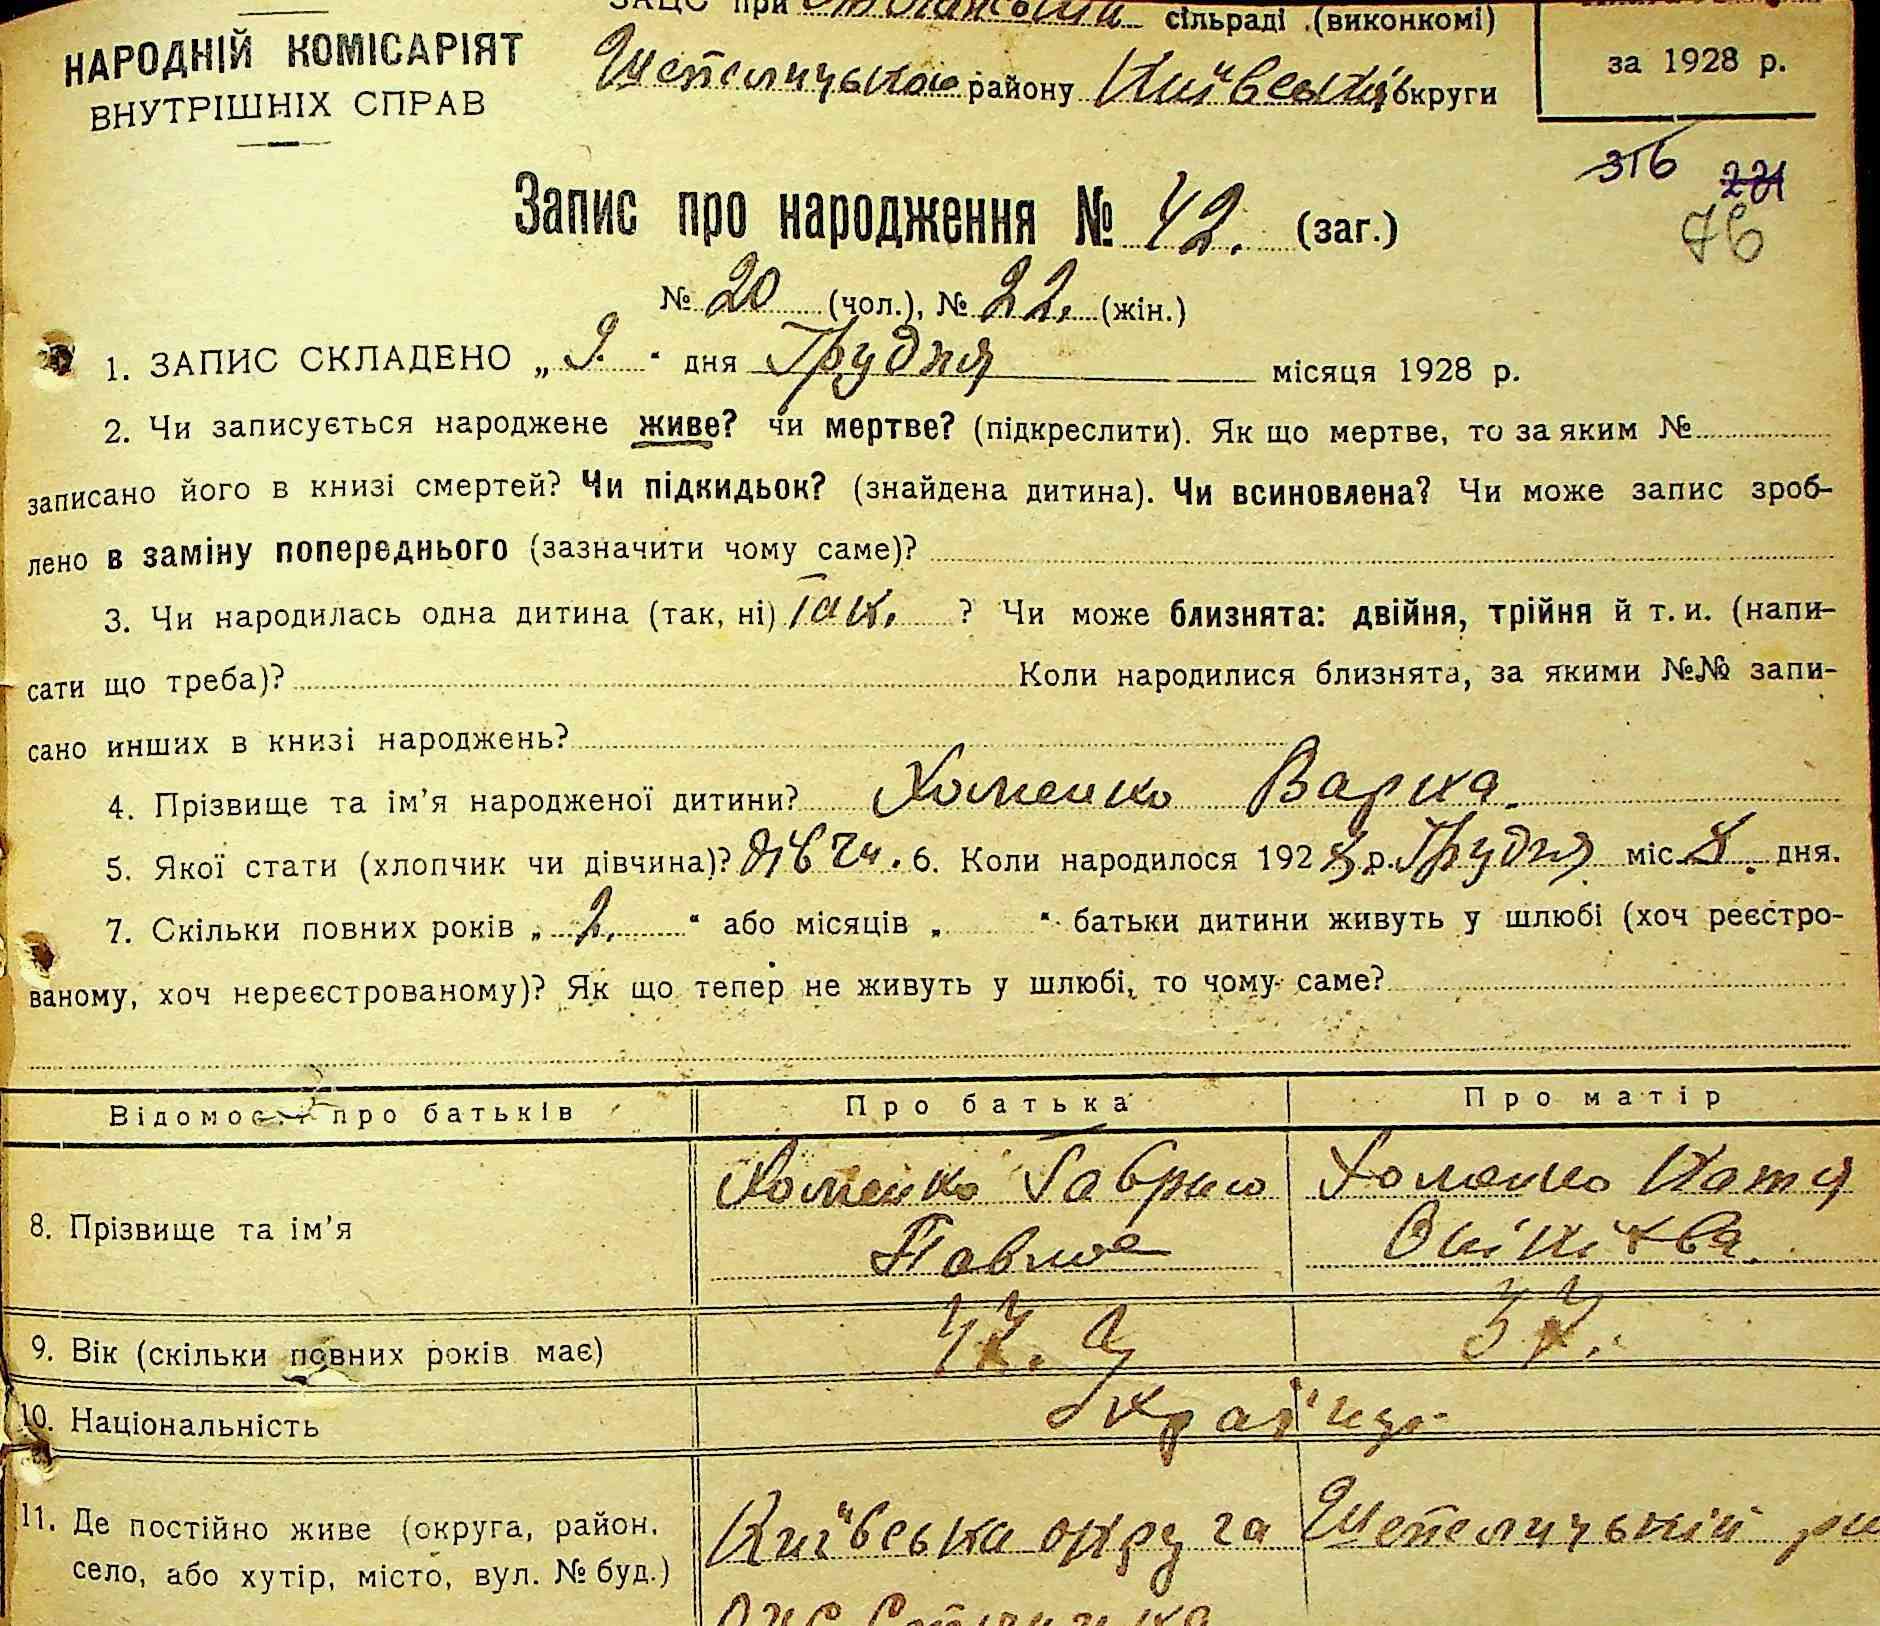 ЗАЦС при сільраді (виконкомі)
НАРОДНІЙ КОМІСАРІЯТ
ВНУТРІШНІХ СПРАВ
Шепелицького району Київської округи
за 1928 р.
316 221
76
Запис про народження № 42. (заг.)
№ 20 (чол.), № 22. (жін.)
1. ЗАПИС СКЛАДЕНО „ 9. “ дня Грудня місяця 1928 р.
2. Чи записується народжене живе? чи мертве? (підкреслити). Як що мертве, то за яким №
записано його в книзі смертей? Чи підкидьок? (знайдена дитина). Чи всиновлена? Чи може запис зроб-
лено в заміну попереднього (зазначити чому саме)?
3. Чи народилась одна дитина (так, ні) Так. ? Чи може близнята: двійня, трійня й т. и. (напи-
сати що треба)? Коли народилися близнята, за якими №№ запи-
сано инших в книзі народжень?
4. Прізвище та ім’я народженої дитини? Хоменко Варка.
5. Якої стати (хлопчик чи дівчина)? дівчи. 6. Коли народилося 1928 р. Грудня міс. 8. дня.
7. Скільки повних років „ 2. “ або місяців „ “ батьки дитини живуть у шлюбі (хоч реєстро-
ваному, хоч нереєстрованому)? Як що тепер не живуть у шлюбі, то чому саме?
Відомости про батьків Про батька Про матір
8. Прізвище та ім’я Хоменко Гаврило Хоменко Катя
Павлов
9. Вік (скільки повних років має)
10. Національність Українці
11. Де постійно живе (округа, район, Київська округа Шепелицький
село, або хутір, місто, вул. № буд.)